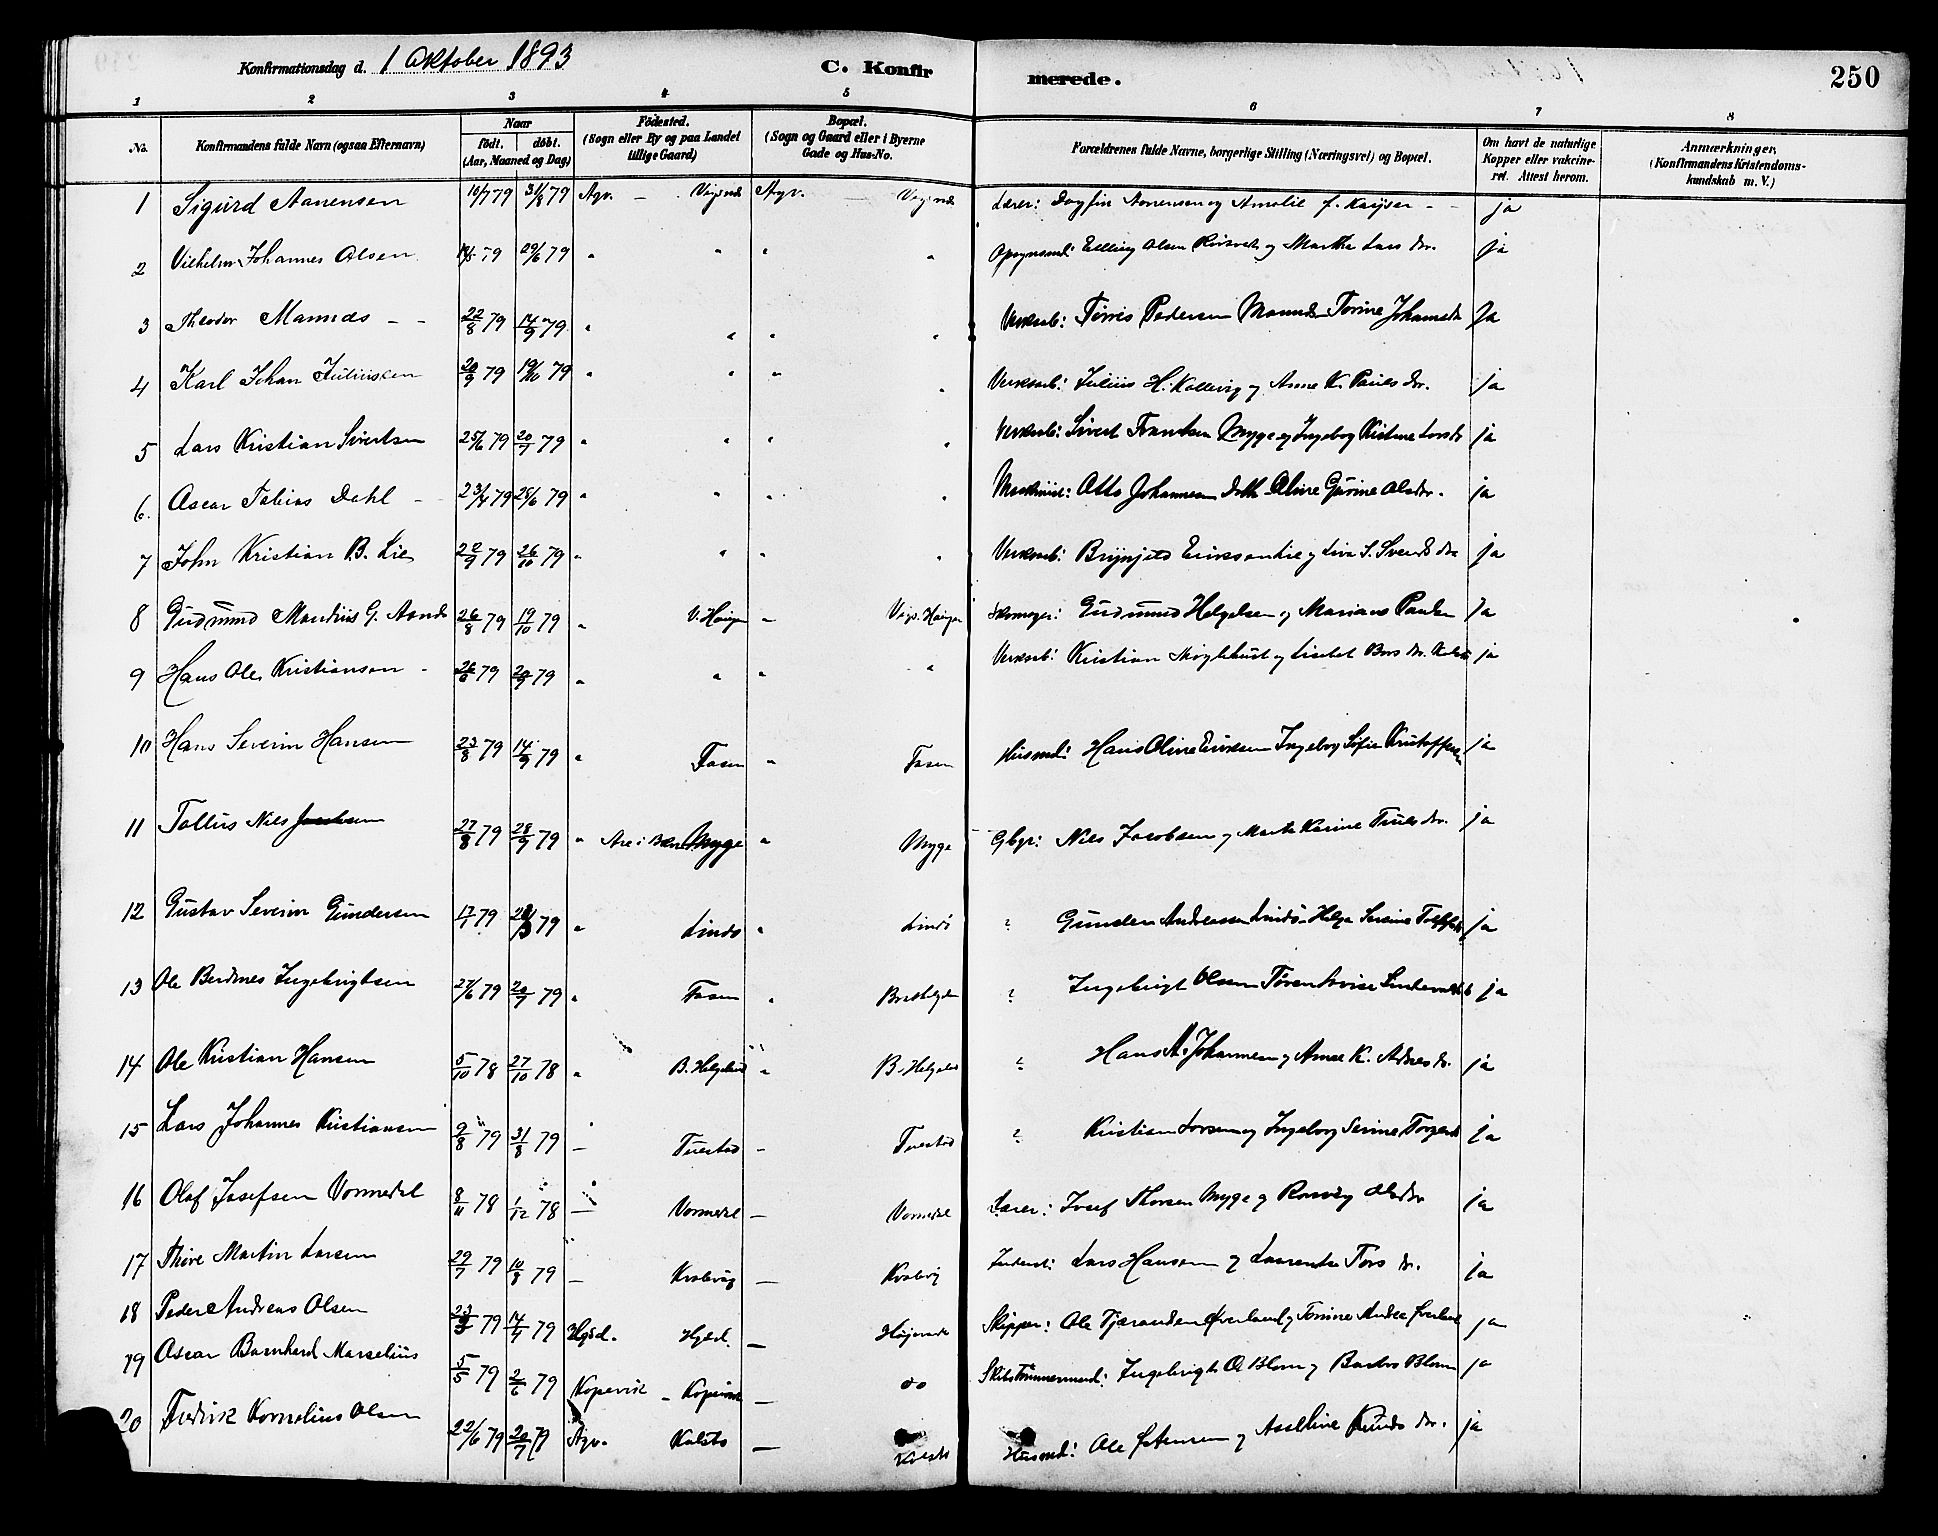 Konfirmationsdag d. 1 Oktober 1893 C. Konfirmerede. 250
1 2 3 4 5 6 7 8
No. Konfirmandens fulde Navn (ogsaa Efternavn) Naar födt. döbt. (Aar, Maaned og Dag) Födested. (Sogn eller By og paa Landet tillige Gaard) Bopæl. (Sogn og Gaard eller i Byerne Gade og Hus-No. Forældrenes fulde Navne, borgerlige Stilling (Næringsvei) og Bopæl. Om havt de naturlige Kopper eller vakcineret. Attest herom. Anmærkninger, (Konfirmandens Kristendomskundskab m. V.)
1 Sigurd Aanensen 10/7 79 31/8 79 Agv. Vigsnes Agv. Vigsnes Lærer: Dagfin Aanensen og Amalie f. Kayser ja
2 Vilhelm Johannes Olsen 79 29/6 79 " " " " Opsynsmd: Elling Olsen og Martha Lars dr. ja
3 Theodor Mannes 22/8 79 14/9 79 " " " " Verksarb: Törres Pedersen Mannes Torine Johannesdr Ja
4 Karl Johan Juliussen 20/9 79 19/10 79 " " " " Verksarb: Julius H. Kallevig og Anne K. Pauls dr. ja
5 Lars Kristian Sivertsen 25/6 79 20/7 79 " " " " Verksarb: Sivert Frantsen Myge og Ingeborg Kristine Larsdr ja
6. Oscar Tobias Dahl 23/4 79 28/6 79 " " " " Maskinist: Otto Johannesen Dahl Oline Gurine Olsdr. ja
7 John Kristian B. Lie 22/9 79 26/10 79 " " " " Verksarb: Brynjeld Eriksen Lie og Lina S. Svends dr. ja
8 Gudmund Mandius G. Aande 26/8 79 19/10 79 " V. Havgen " Vigs. Havgen Skomager: Gudmund Helgesen og Mariane Paulsen Ja
9 Hans Ole Kristiansen 26/8 79 20/9 79 " " " " Verksarb: Kristian og Lisebet ja
10 Hans Severin Hansen 23/8 79 14/9 79 " Fosen " Fosen Husmd: Hans Oline Eriksen Ingeborg Sofie Kristoffersen ja
11 Tollius Nils Jacobsen 27/8 79 28/9 79 " Are i Bkn Myge " Myge Gbgr: Nils Jacobsen og Marta Karine Truls dr. ja
12 Gustav Severin Gundersen 17/1 79 /3 79 " Lindö " Lindö " Gunder Andreassen Lindö Helga Serine ja
13 Ole Berdines Ingebrigtsen 27/6 79 20/7 79 " Fosen " Brekhelgeland " Ingebrigt Olsen ja
14 Ole Kristian Hansen 5/10 78 27/10 78 " B. Helgeland " B. Helgeland " Hans A. Johannesen og Anne K. Adnes dr. ja
15 Lars Johannes Kristiansen 9/8 79 31/8 79 – Tuestad – Tuestad " Kristian Larsen og Ingeborg Serine ja
16 Olaf Josefsen Vormedal 8/11 78 1/12 78 – Vormedal – Vormedal Lærer: Josef Thorsen Myge og Olsdr ja
17 Thore Martin Larsen 29/7 79 10/8 79 – Kvalevåg – Kvalevig Inderst: Lars Hansen og Laurentse Tors dr. ja
18 Peder Andreas Olsen 23/3 79 14/4 79 Hgsd. Hgsd. – Haugesund Skipper: Ole Tjærandsen Øverland og Tomine Andrea Øverland ja
19 Oscar Bernhard Marselius 5/5 79 2/6 79 Kopervik – Kopervik – do Skibstömmermand: Ingebrigt O. Blom og Barbro Blom ja
20 Fredrik Kornelius Olsen 22/6 79 20/7 79 Agv. Kolstø – Kolstø Husmd: Ole og Aseline Knuds dr. ja